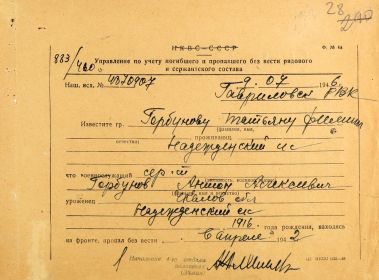 28
240
НКВС—СССР
Ф. № 6а
Управление по учету погибшего и пропавшего без вести рядового
и сержантского состава
883/
Наш. исх. № 4370907 9 07 194 6
Гавриловск РВК
Известите гр. Горбунову Татьяну
(фамилия, имя,
отчество) проживающ.
Надежденский с/с
что военнослужащий серж-т
Горбунов Антон Алексеевич
уроженец обл
Надежденский с/с
1916 года рождения, находясь
на фронте, пропал без вести В апреле 194 2
Начальник 4-го отдела